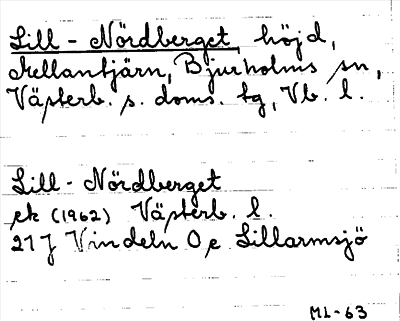 Lill-Nördberget, höjd,
Mellantjärn, Bjurholms sn,
Västerb. s. doms. tg, Vb. l.
Lill-Nördberget
ek (1962) Västerb. l.
21J Vindeln O,e Lillarmsjö
ML-63